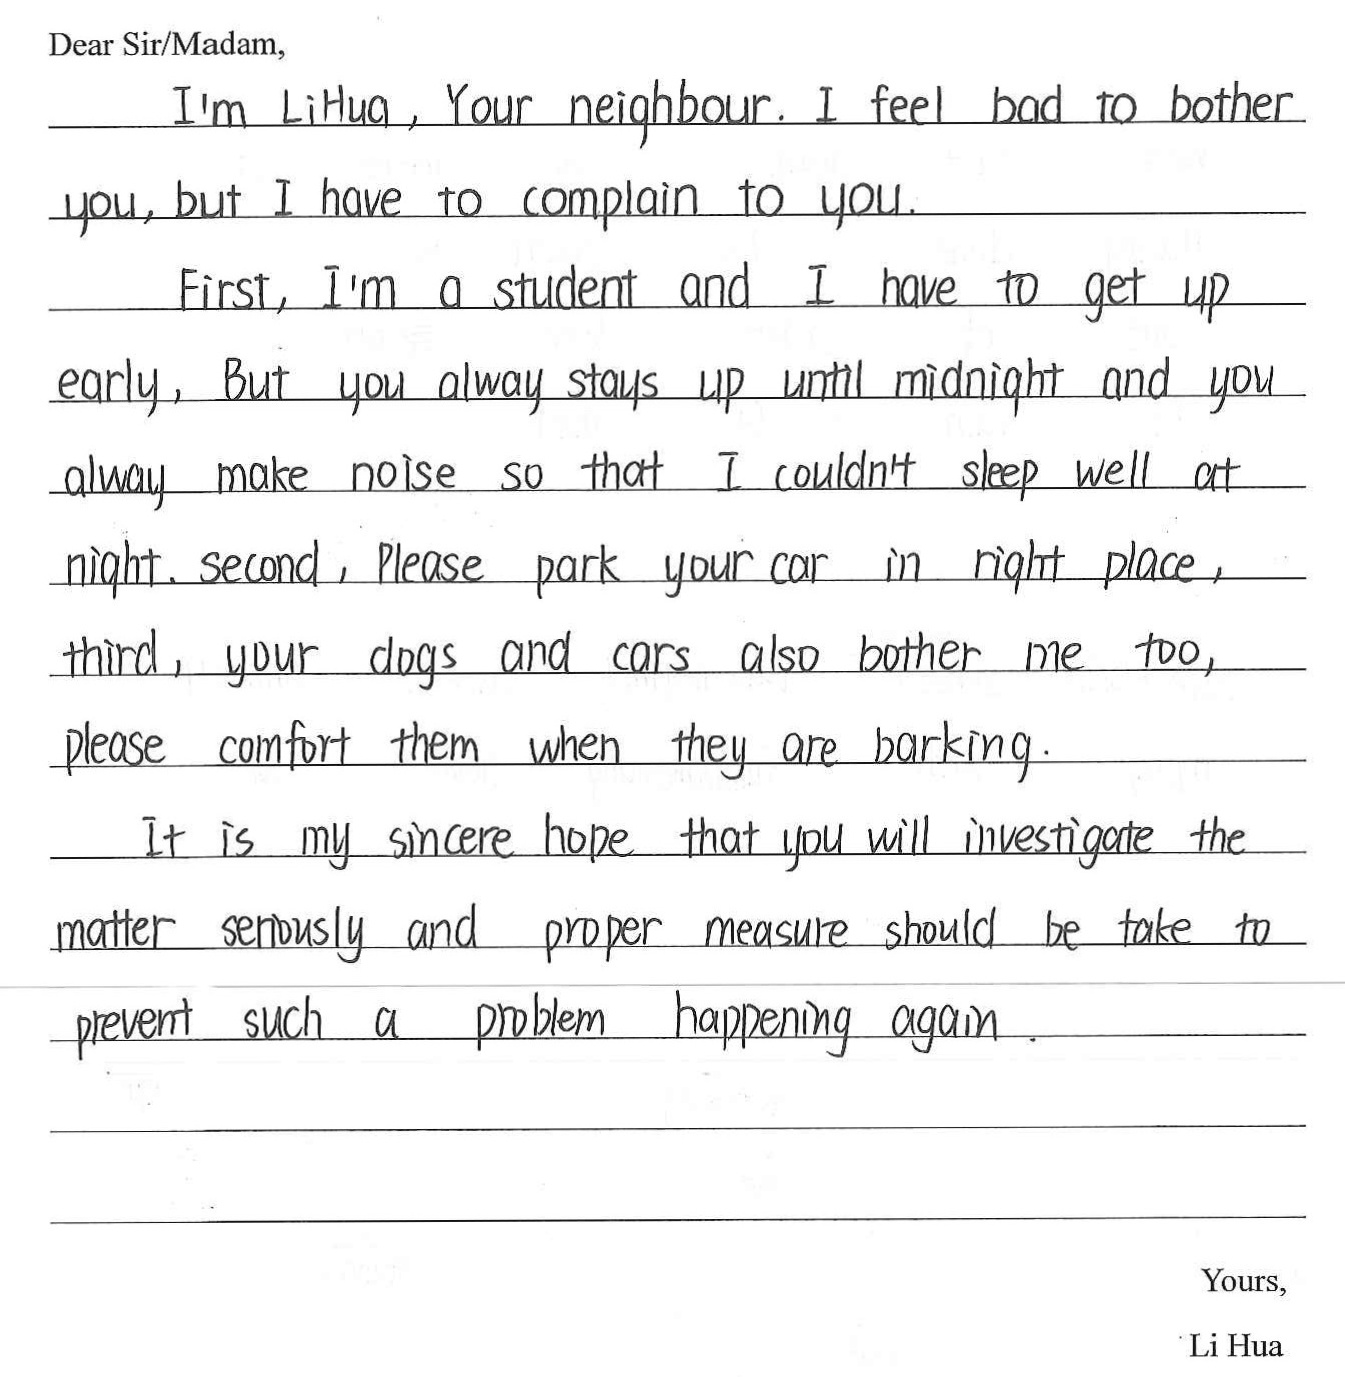 Dear Sir/Madam,
I'm LiHua, Your neighbour. I feel bad to bother
you, but I have to complain to you.
First, I'm a student and I have to get up
early, But you alway stays up until midnight and you
alway make noise so that I couldn't sleep well at
night. second, Please park your car in right place,
third, your dogs and cars also bother me too,
please comfort them when they are barking.
It is my sincere hope that you will investigate the
matter seriously and proper measure should be take to
prevent such a problem happening again.
Yours,
Li Hua